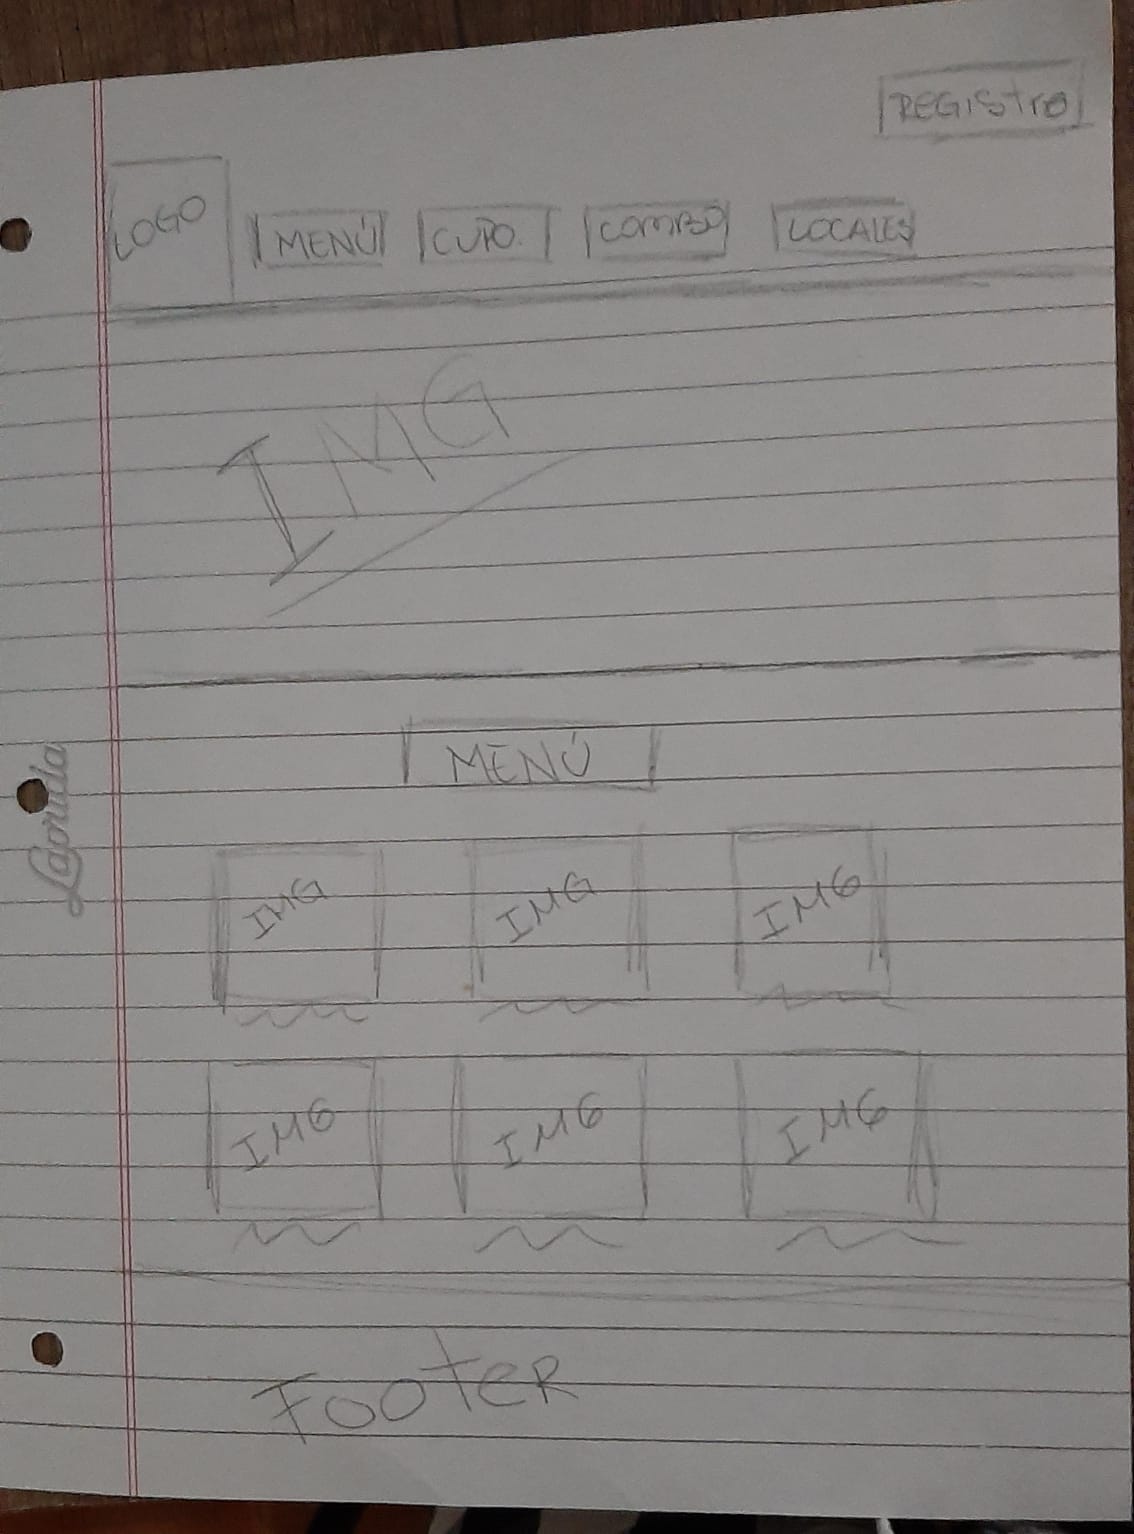 REGISTRO
LOGO
MENÚ
CUPO.
COMBO
LOCALES
IMG
MENÚ
IMG IMG IMG
IMG IMG IMG
FOOTER
Laprida